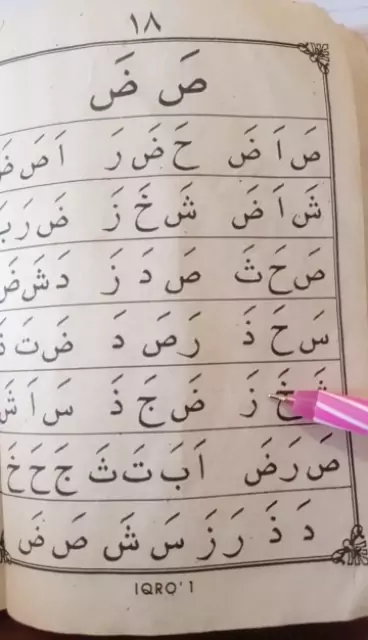 ١٨
صَ ضَ
صَ اَ ضَ حَ ضَ رَ اَ صَ ضَ
شَ اَ ضَ شَ خَ زَ ضَ رَ بَ
صَ حَ ثَ صَ دَ زَ دَ شَ ضَ
سَ حَ ذَ رَ صَ دَ ضَ تَ
خَ زَ ضَ جَ ذَ سَ اَ شَ
صَ رَ ضَ اَ بَ تَ ثَ جَ حَ خَ
دَ ذَ رَ زَ سَ شَ صَ ضَ
IQRO' 1